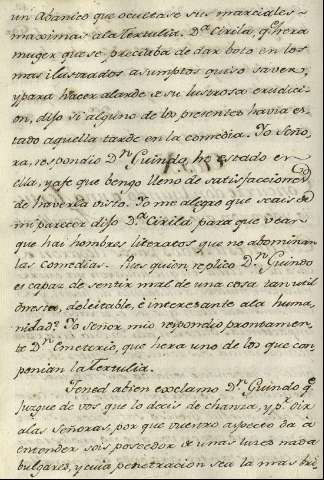 un Abanico que ocultase sus marciales
maximas ala Tertulia. D.ª Cirila, q.e hera
muger que se preciaba de dar boto en los
mas ilustrados asumptos quiso saver,
ypara hacer alarde de su lustrosa erudici-
on, dijo si alguno de los presentes havia es-
tado aquella tarde en la comedia. Yo Seño-
ra, respondio D.n Guindo, he estado en
ella, yafe que bengo lleno de satisfacciones
de haverla visto. Yo me alegro que seais de
mi parecer dijo D.ª Cirila para que vean
que hai hombres literatos que no abominan
las comedias. Pues quien, replico D.n Guindo
es capaz de sentir mal de una cosa tan util
onesta, deleitable, è interesante ala huma-
nidad? Yo Señor mio respondio prontamen-
te D.n Emeterio, que hera uno de los que com-
ponian la Tertulia.
Tened abien exclamo D.n Guindo q.e
Juzgue de vos que lo decis de chanza, y p.r oir
alas Señoras, por que vuestro aspecto da a
entender sois poseedor de unas luces nada
bulgares, ycuia penetracion sea la mas bri-